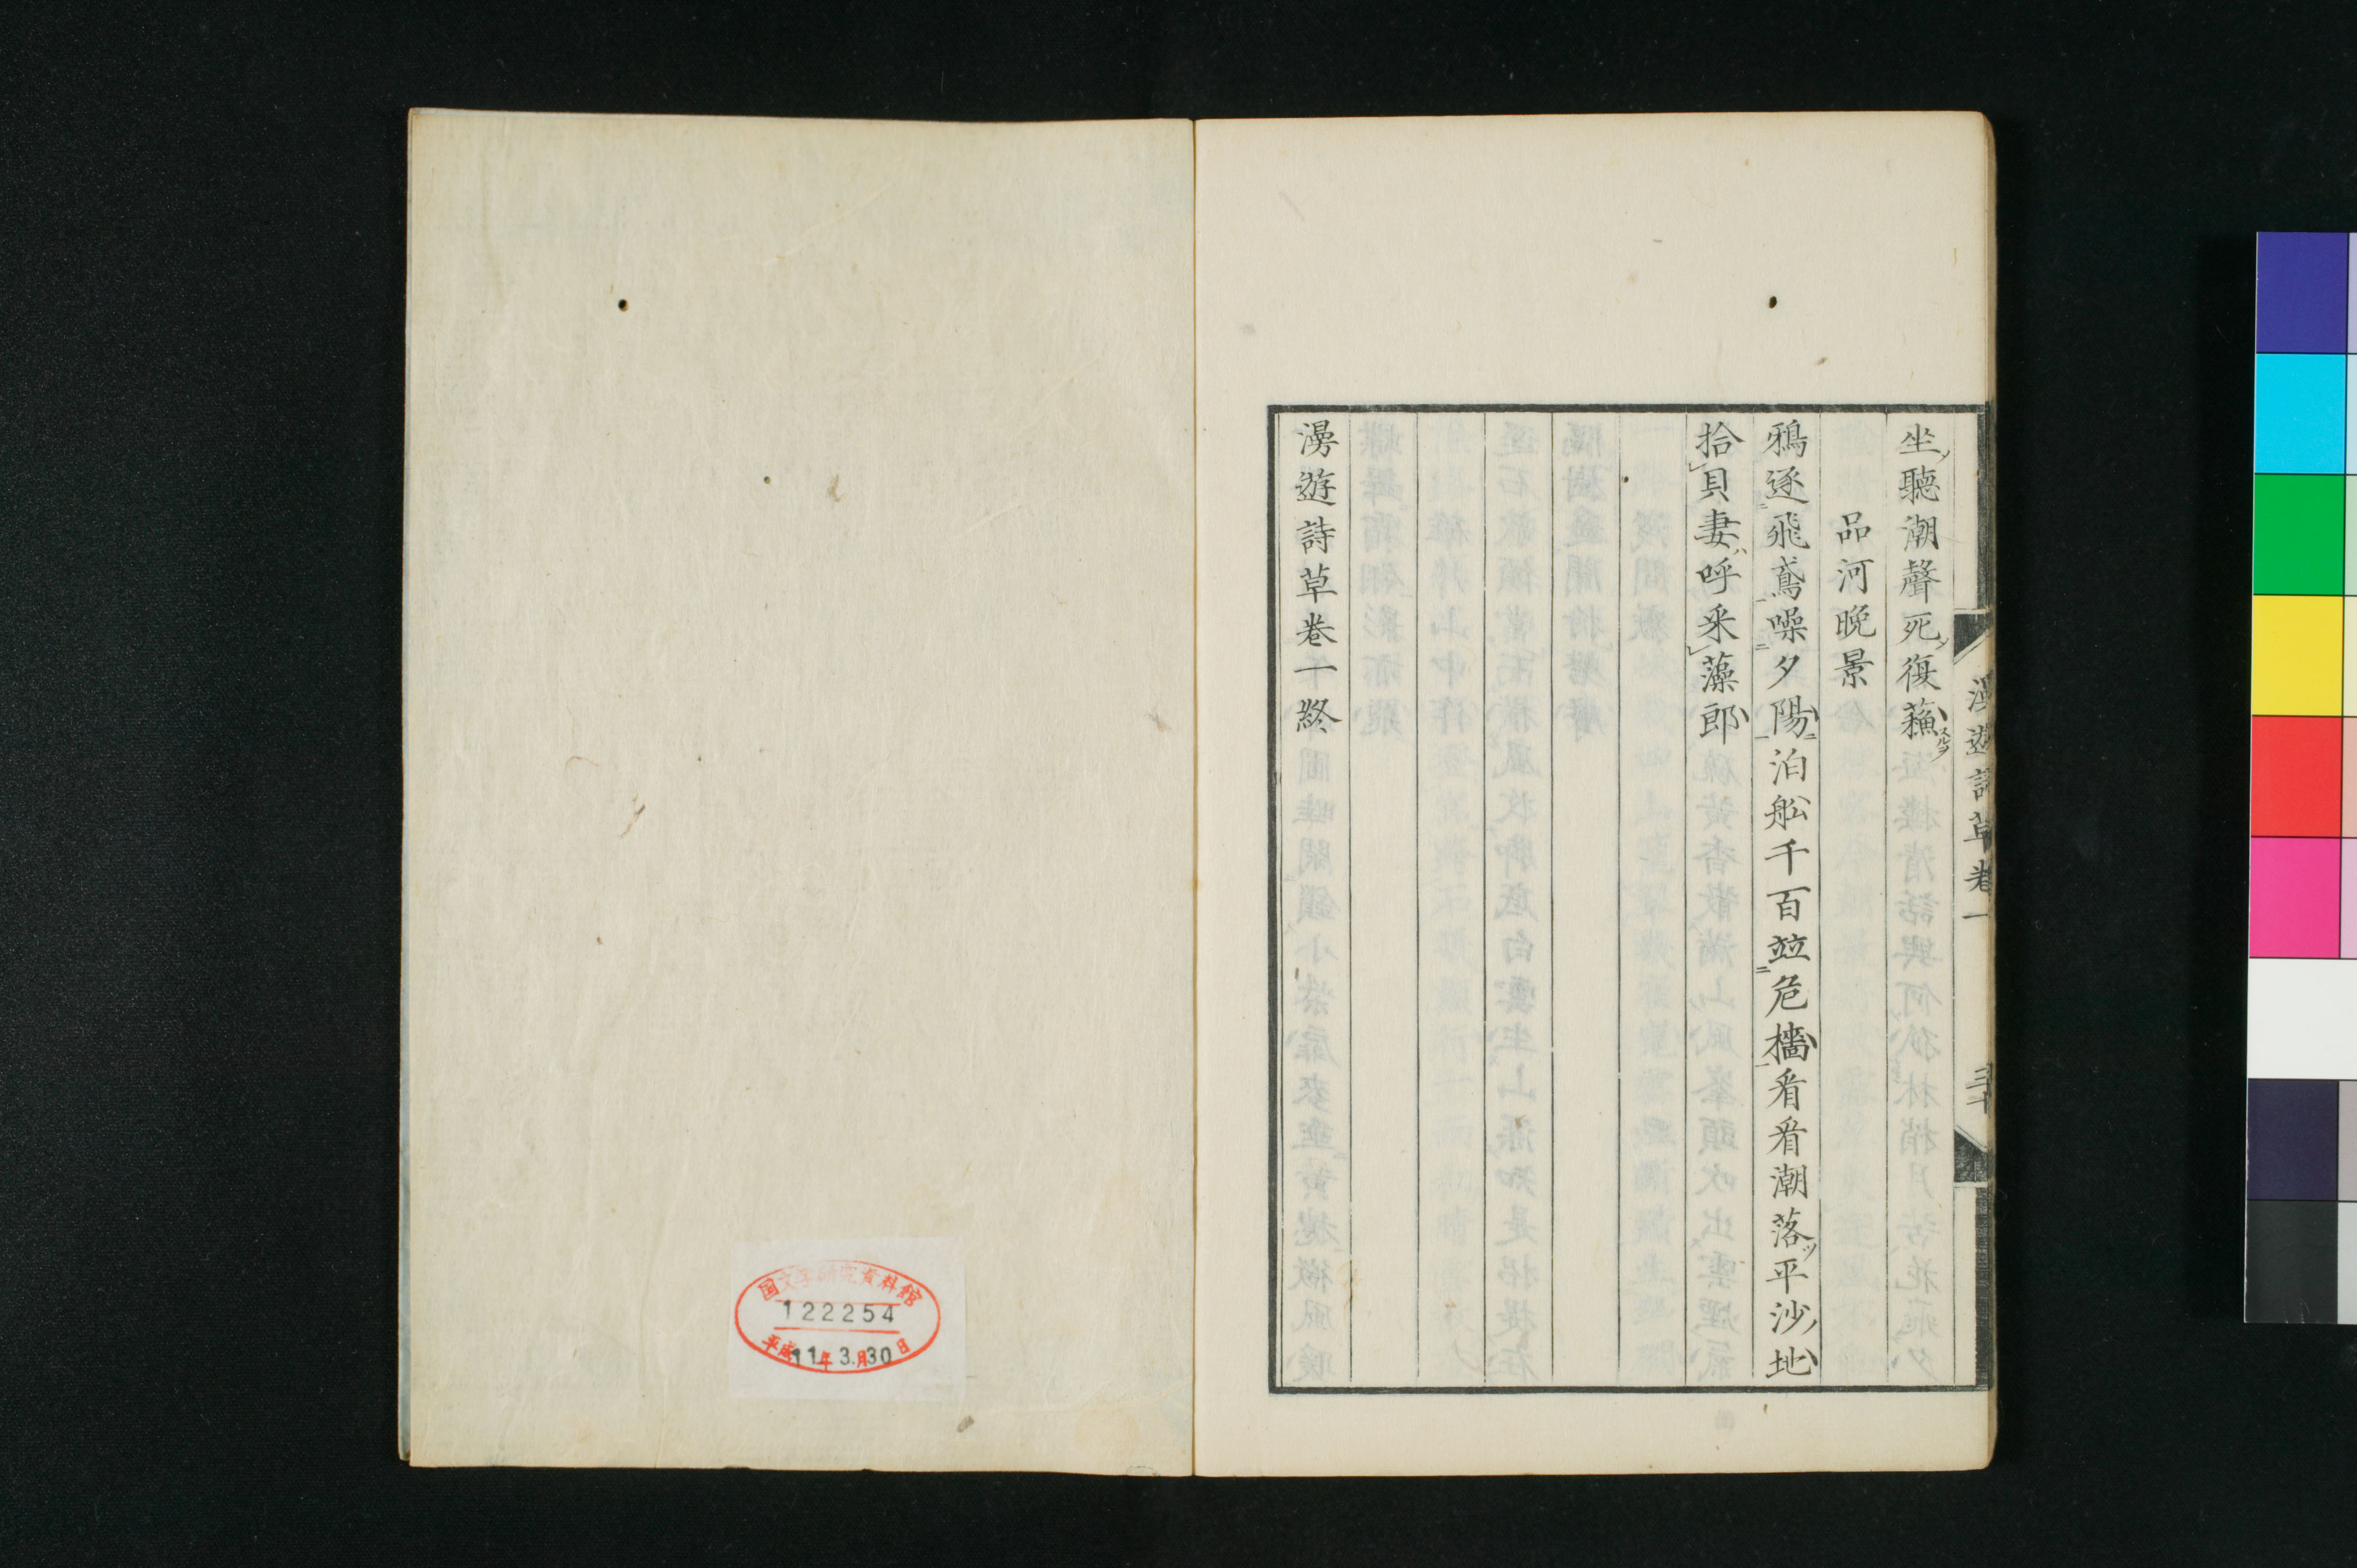 漫遊詩草卷一
三十
坐聽潮聲死復蘓
品河晚景
鴉逐飛鳶噪夕陽泊舩千百竝危檣看看潮落平沙地
拾貝妻呼采藻郎
漫遊詩草卷一終
国文学研究資料館
122254
平成11年3月30日